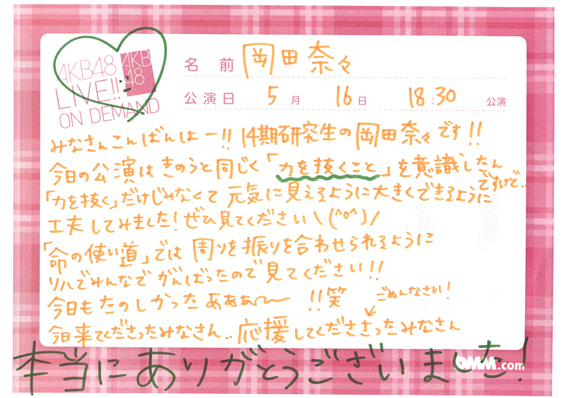 AKB48
LIVE!!
ON DEMAND
AKB
48
名 前 岡田奈々
公演日 5月 16日 18:30 公演
みなさんこんばんはー!! 14期研究生の岡田奈々です!!
今日の公演はきのうと同じく「力を抜くこと」を意識したん
ですけど..
「力を抜く」だけじゃなくて 元気に見えるように大きくできるように
工夫してみました!ぜひ見てください\(^o^)/
「命の使い道」では 周りを振りを合わせられるように
リハでみんなでがんばったので見てください!!
今日もたのしかったあぁぁ〜 !!笑
ごめんなさい!
今日来てくださったみなさん.. 応援してくださきったみなさん
本当にありがとうございました!
DMM.com